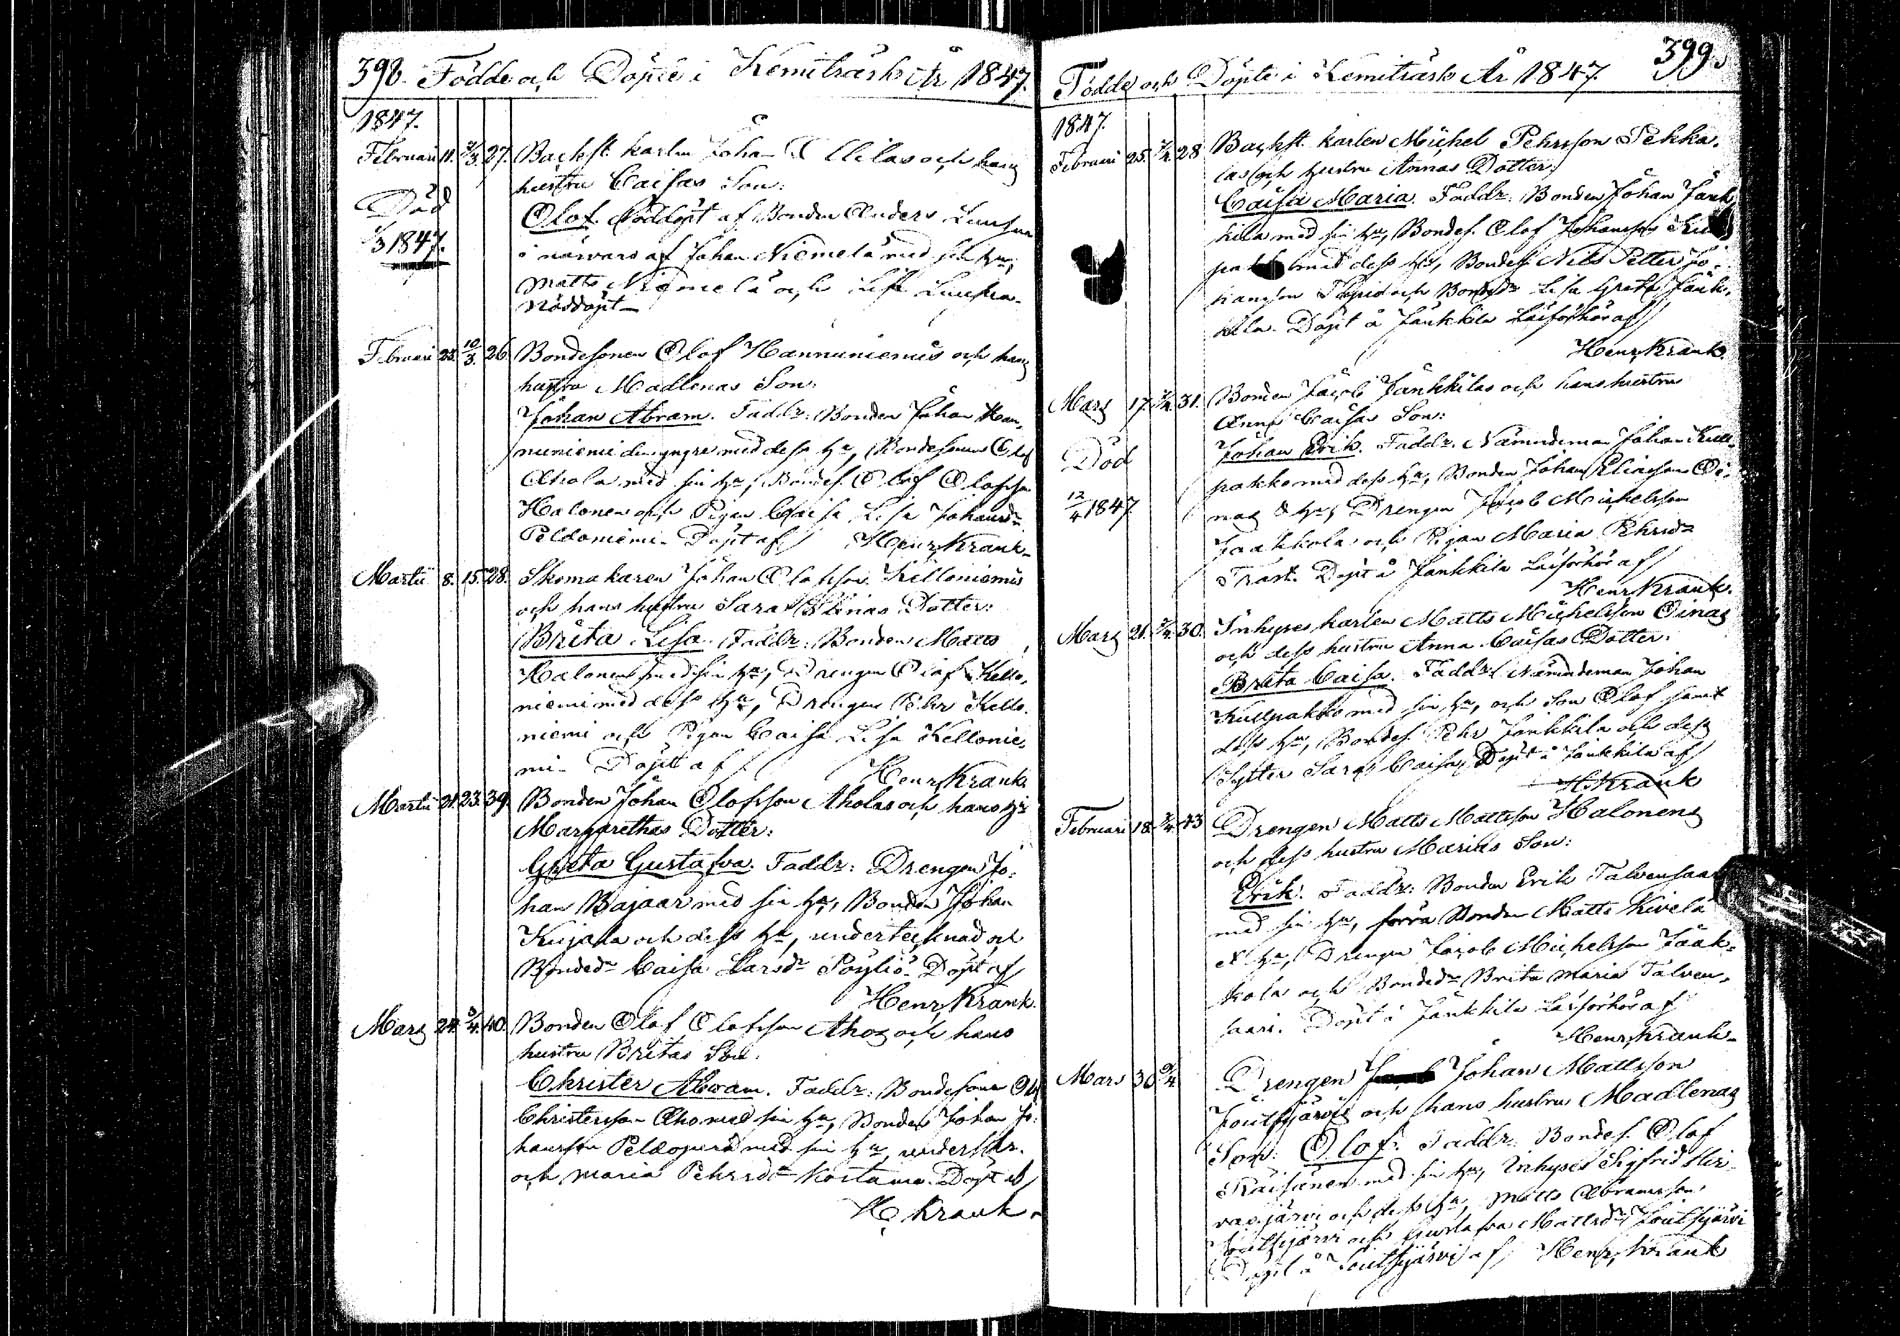 398. Födde och Döpte i Kemiträsk År 1847.
1847.
Februari 11. 27. Backst. karlen Johan och hans
hustru Caisas Son:
Död
Olof. Nöddöpt af Bonden Anders
1847.
i närvaro af Johan Niemelä med sin hu,
Matts Niemelä och
Nöddöpt
Februari 10/3 26. Bondesonen Olof Hannuniemis och hans
hustru Madlenas Son:
Johan Abram. Faddr: Bonden Johan Han-
nuniemi den yngre med dess hu, Bondesonen Olof
Ahola med sin hu, Bondes. Olof Olofsson
Halonen och Pigan Caisa Lisa Johansdr
Peldoniemi. Döpt af Henr. Krank.
Martii 8. 15. 28. Skomakaren Johan Olofsson Kelloniemis
och hans hustru Sara Stinas Dotter:
Brita Lisa. Faddr: Bonden Matts
Halonen med sin hu, Drengen Olof Kello-
niemi med dess hu, Drengen Pehr Kello-
niemi och Pigan Caisa Lisa Kellonie-
mi. Döpt af
Henr. Krank
Martii 21. 23. 39. Bonden Johan Olofsson Aholas och hans hu
Margarethas Dotter:
Greta Gustafva. Faddr: Drengen Jo-
han Bajaar med sin hu, Bonden Johan
Kujala och dess hu, undertecknad och
Bondedr Caisa Larsdr Pöyliö. Döpt af
Henr. Krank.
Mars 24. 5/4. 40. Bonden Olof Olofsson Ahos och hans
hustru Britas Son.
Christer Abram. Faddr: Bondesonen Olof
Christersson Aho med sin hu, Bonden Johan Jo-
hansson med sin hu, underskr.
och Maria Pehrsdr Kostamo. Döpt af
H. Krank.
399.
Födde och Döpte i Kemiträsk År 1847.
1847.
Februari 25. 28 Backst. karlen Michel Pehrsson Pekka-
las och hustru Annas Dotter:
Caisa Maria. Faddr: Bonden Johan Jank-
kila med sin hu, Bondes. Olof Johansson
med dess hu, Bondes. Nils Petter Jo-
hansson och Bondedr Lisa Greta Jänk-
kila. Döpt å Jänkkila Läsförhör af
Henr. Krank.
Mars 17. 31. Bonden Jacob Jänkkilas och hans hustru
Anna Caisas Son:
Johan Erik. Faddr. Nämndeman Johan Kull-
Död
pakko med dess hu, Bonden Johan Eliasson Oi-
12/4 1847.
nas & hu, Drengen Jacob Michelsson
Jaakkola och Pigan Maria Pehrsdr
Döpt å Jänkkila Läsförhör af
Henr. Krank.
Mars 21. 30. Inhyses karlen Matts Michelsson Oinas
och dess hustru Anna Caisas Dotter:
Brita Caisa. Faddr: Nämndeman Johan
Kullpakko med sin hu, och Son Olof samt
dess hu, Bondes. Pehr Jänkkila och dess
Syster Sara Caisa, Döpt å Jänkkila af
H. Krank
Februari 18. 43 Drengen Matts Mattsson Halonens
och dess hustru Marias Son:
Erik. Faddr: Bonden Erik Talvensaari
med sin hu, förra Bonden Matts Kivelä
& hu, Drengen Jacob Michelsson Jaak-
kola och Bondedr Brita Maria Talven-
saari. Döpt å Jänkkila Läsförhör af
Henr. Krank.
Mars 30. Drengen Johan Mattsson
Joutsjärvis och hans hustru Madlenas
Son: Olof. Faddr: Bondes. Olof
Räisänen med sin hu, Inhyses Sigfrid Hir-
vasjärvi och dess hu, Matts Abramsson
Joutsjärvi och Gustafva Mattsdr Joutsjärvi
Döpt å Joutsjärvi af Henr. Krank